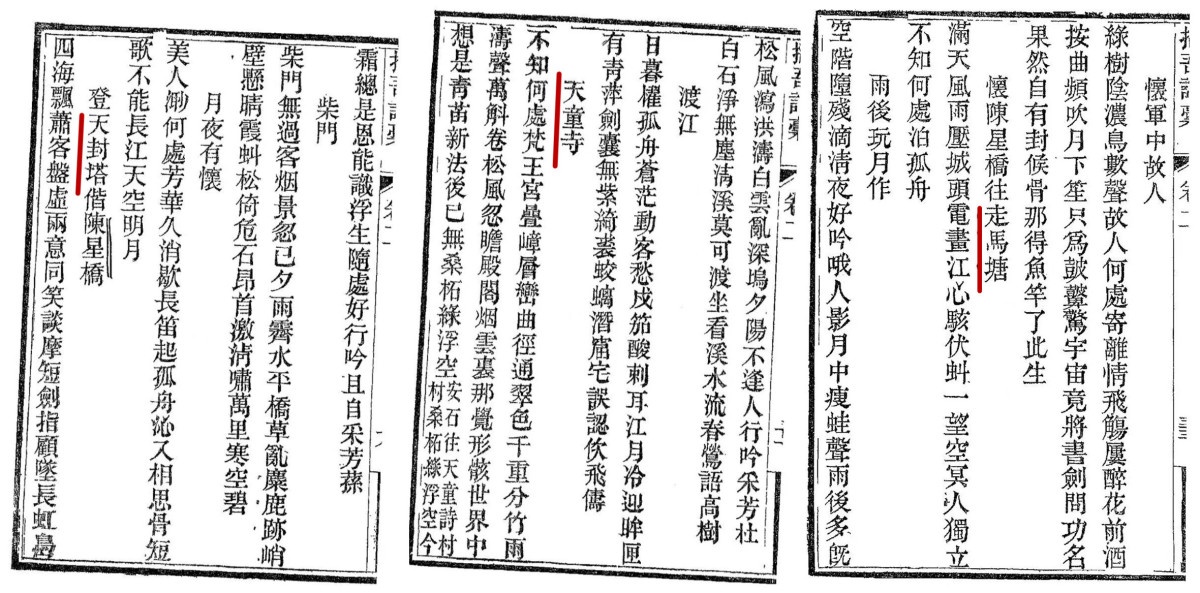 懷軍中故人
綠樹陰濃鳥數聲故人何處寄離情飛觴屢醉花前酒
按曲頻吹月下笙只爲鼓鼙驚宇宙竟將書劍問功名
果然自有封候骨那得魚竿了此生
懷陳星橋往走馬塘
滿天風雨壓城頭電畫江心駭伏虯一望空冥人獨立
不知何處泊孤舟
雨後玩月作
空階隨殘滴淸夜好吟哦人影月中瘦蛙聲雨後多旣
松風瀉洪濤白雲亂深塢夕陽不逢人行吟采芳杜
白石淨無塵淸溪莫可渡坐看溪水流春鶯語高樹
渡江
日暮櫂孤舟蒼茫動客愁戍笳酸刺耳江月冷迎眸匣
有靑萍劍囊無紫綺裘蛟螭潛窟宅誤認佽飛儔
天童寺
不知何處梵王宮疊嶂層巒曲徑通翠色千重分竹雨
濤聲萬斛卷松風忽瞻殿閣烟雲裏那覺形骸世界中
想是靑苗新法後已無桑柘綠浮空
安石往天童詩村
村桑柘綠浮空今
霜總是恩能識浮生隨處好行吟且自采芳蓀
柴門
柴門無過客烟景忽已夕雨霽水平橋草亂麋鹿跡峭
壁懸晴霞虯松倚危石昂首激淸嘯萬里寒空碧
月夜有懷
美人渺何處芳華久消歇長笛起孤舟沁又相思骨短
歌不能長江天空明月
登天封塔偕陳星橋
四海飄蕭客盤虛兩意同笑談摩短劍指顧墜長虹鳥